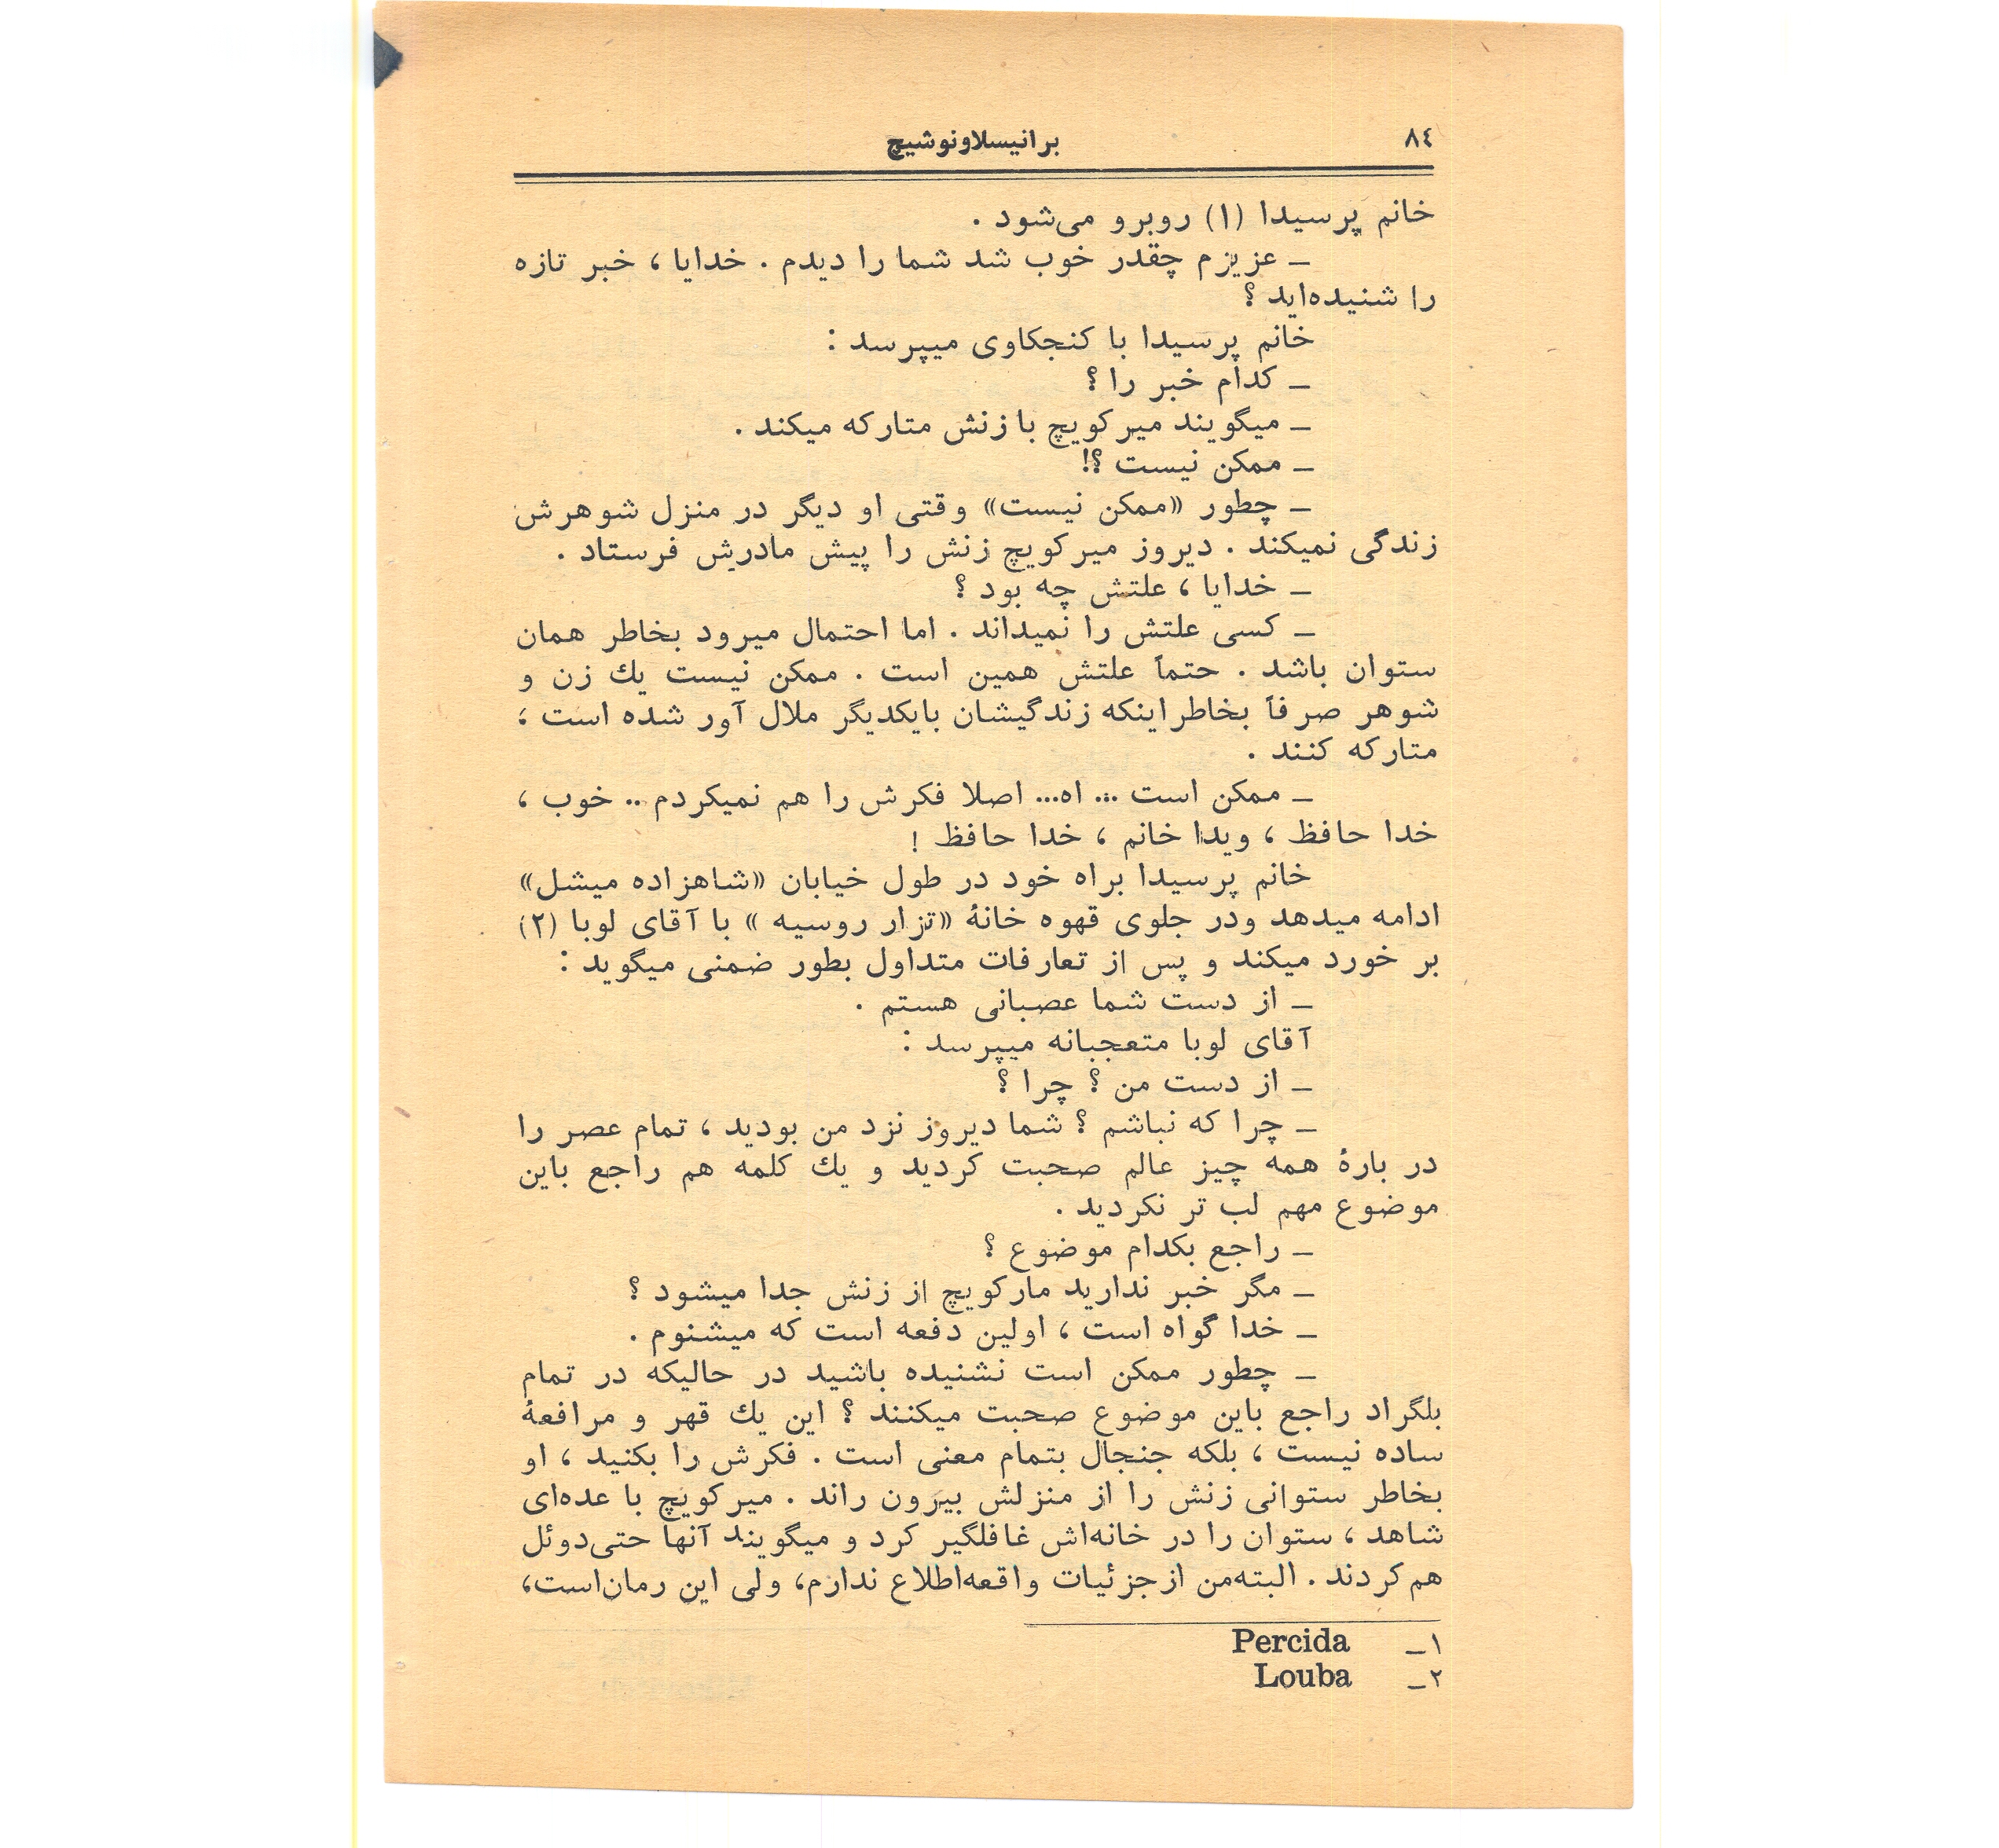 ۸٤
برانیسلاونوشیچ
خانم پرسیدا (۱) روبرو می‌شود .
ــ عزیزم چقدر خوب شد شما را دیدم . خدایا ، خبر تازه
را شنیده‌اید ؟
خانم پرسیدا با کنجکاوی میپرسد :
ــ کدام خبر را ؟
ــ میگویند میرکویچ با زنش متارکه میکند .
ــ ممکن نیست ؟!
ــ چطور «ممکن نیست» وقتی او دیگر در منزل شوهرش
زندگی نمیکند . دیروز میرکویچ زنش را پیش مادرش فرستاد .
ــ خدایا ، علتش چه بود ؟
ــ کسی علتش را نمیداند . اما احتمال میرود بخاطر همان
ستوان باشد . حتماً علتش همین است . ممکن نیست یك زن و
شوهر صرفاً بخاطراینکه زندگیشان بایکدیگر ملال آور شده است ،
متارکه کنند .
ــ ممکن است ... اه... اصلا فکرش را هم نمیکردم .. خوب ،
خدا حافظ ، ویدا خانم ، خدا حافظ !
خانم پرسیدا براه خود در طول خیابان «شاهزاده میشل»
ادامه میدهد ودر جلوی قهوه خانهٔ «تزار روسیه » با آقای لوبا (۲)
بر خورد میکند و پس از تعارفات متداول بطور ضمنی میگوید :
ــ از دست شما عصبانی هستم .
آقای لوبا متعجبانه میپرسد :
ــ از دست من ؟ چرا ؟
ــ چرا که نباشم ؟ شما دیروز نزد من بودید ، تمام عصر را
در بارهٔ همه چیز عالم صحبت کردید و یك کلمه هم راجع باین
موضوع مهم لب تر نکردید .
ــ راجع بکدام موضوع ؟
ــ مگر خبر ندارید مارکویچ از زنش جدا میشود ؟
ــ خدا گواه است ، اولین دفعه است که میشنوم .
ــ چطور ممکن است نشنیده باشید در حالیکه در تمام
بلگراد راجع باین موضوع صحبت میکنند ؟ این یك قهر و مرافعهٔ
ساده نیست ، بلکه جنجال بتمام معنی است . فکرش را بکنید ، او
بخاطر ستوانی زنش را از منزلش بیرون راند . میرکویچ با عده‌ای
شاهد ، ستوان را در خانه‌اش غافلگیر کرد و میگویند آنها حتی‌دوئل
هم‌کردند . البته‌من ازجزئیات واقعه‌اطلاع ندارم، ولی این رمان‌است،
۱ــ Percida
۲ــ Louba